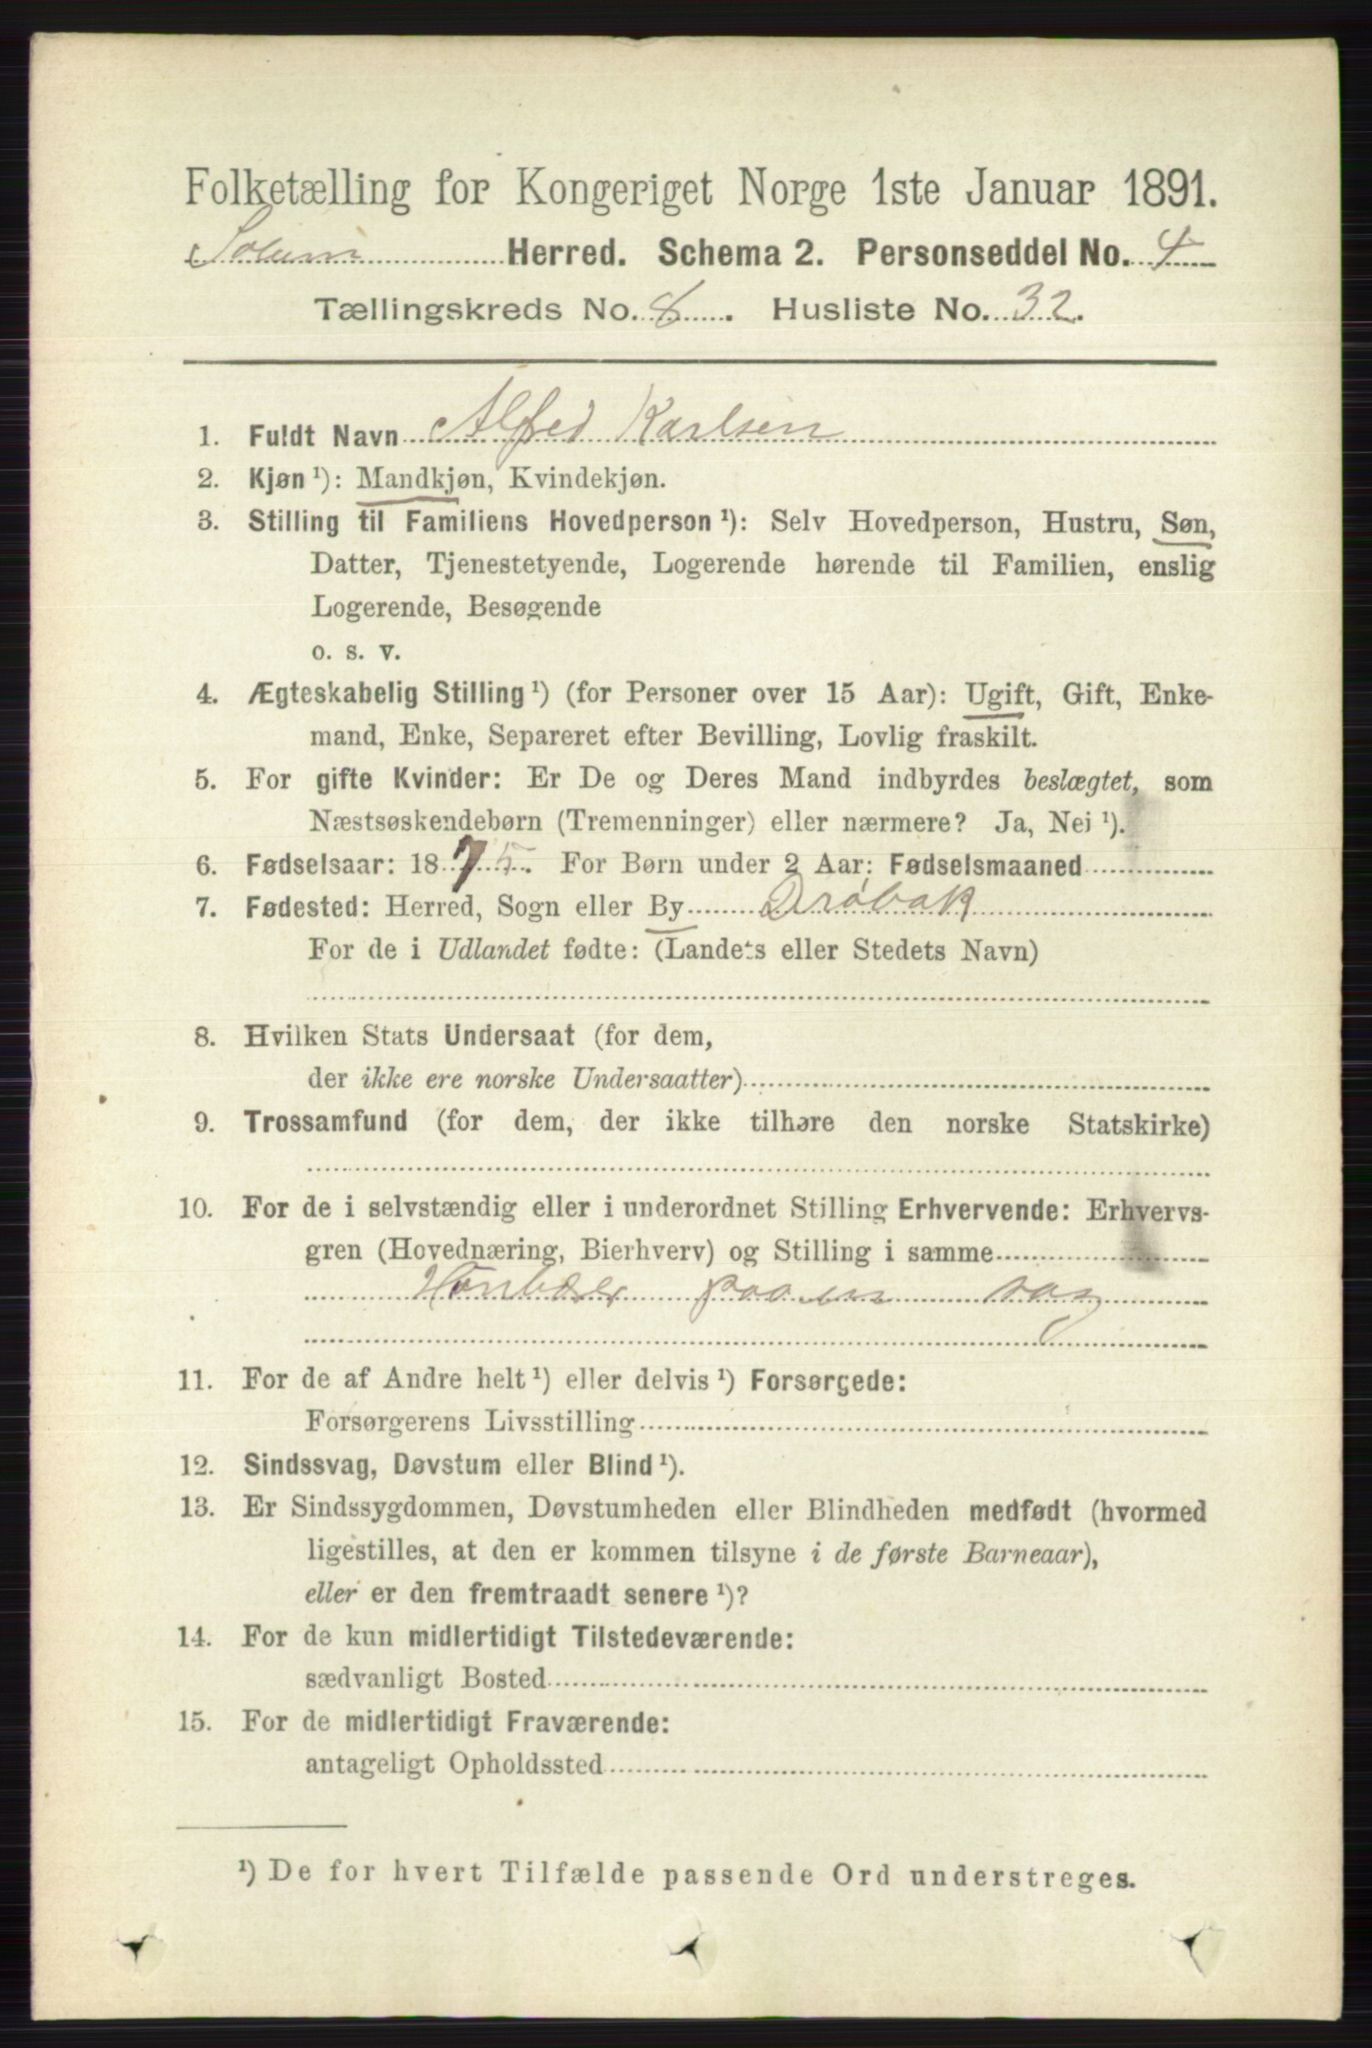 Folketælling for Kongeriget Norge 1ste Januar 1891.
Solum Herred. Schema 2. Personseddel No. 4
Tællingskreds No. 8. Husliste No. 32.
1. Fuldt Navn Alfred Karlsen
2. Kjøn ¹): Mandkjøn, Kvindekjøn.
3. Stilling til Familiens Hovedperson ¹): Selv Hovedperson, Hustru, Søn,
Datter, Tjenestetyende, Logerende hørende til Familien, enslig
Logerende, Besøgende
o. s. v.
4. Ægteskabelig Stilling ¹) (for Personer over 15 Aar): Ugift, Gift, Enke-
mand, Enke, Separeret efter Bevilling, Lovlig fraskilt.
5. For gifte Kvinder: Er De og Deres Mand indbyrdes beslægtet, som
Næstsøskendebørn (Tremenninger) eller nærmere? Ja, Nei ¹).
6. Fødselsaar: 1875. For Børn under 2 Aar: Fødselsmaaned
7. Fødested: Herred, Sogn eller By Drøbak
For de i Udlandet fødte: (Landets eller Stedets Navn)
8. Hvilken Stats Undersaat (for dem,
der ikke ere norske Undersaatter)
9. Trossamfund (for dem, der ikke tilhøre den norske Statskirke)
10. For de i selvstændig eller i underordnet Stilling Erhvervende: Erhvervs-
gren (Hovednæring, Bierhverv) og Stilling i samme
paa en sag
11. For de af Andre helt ¹) eller delvis ¹) Forsørgede:
Forsørgerens Livsstilling
12. Sindssvag, Døvstum eller Blind ¹).
13. Er Sindssygdommen, Døvstumheden eller Blindheden medfødt (hvormed
ligestilles, at den er kommen tilsyne i de første Barneaar),
eller er den fremtraadt senere ¹)?
14. For de kun midlertidigt Tilstedeværende:
sædvanligt Bosted
15. For de midlertidigt Fraværende:
antageligt Opholdssted
¹) De for hvert Tilfælde passende Ord understreges.